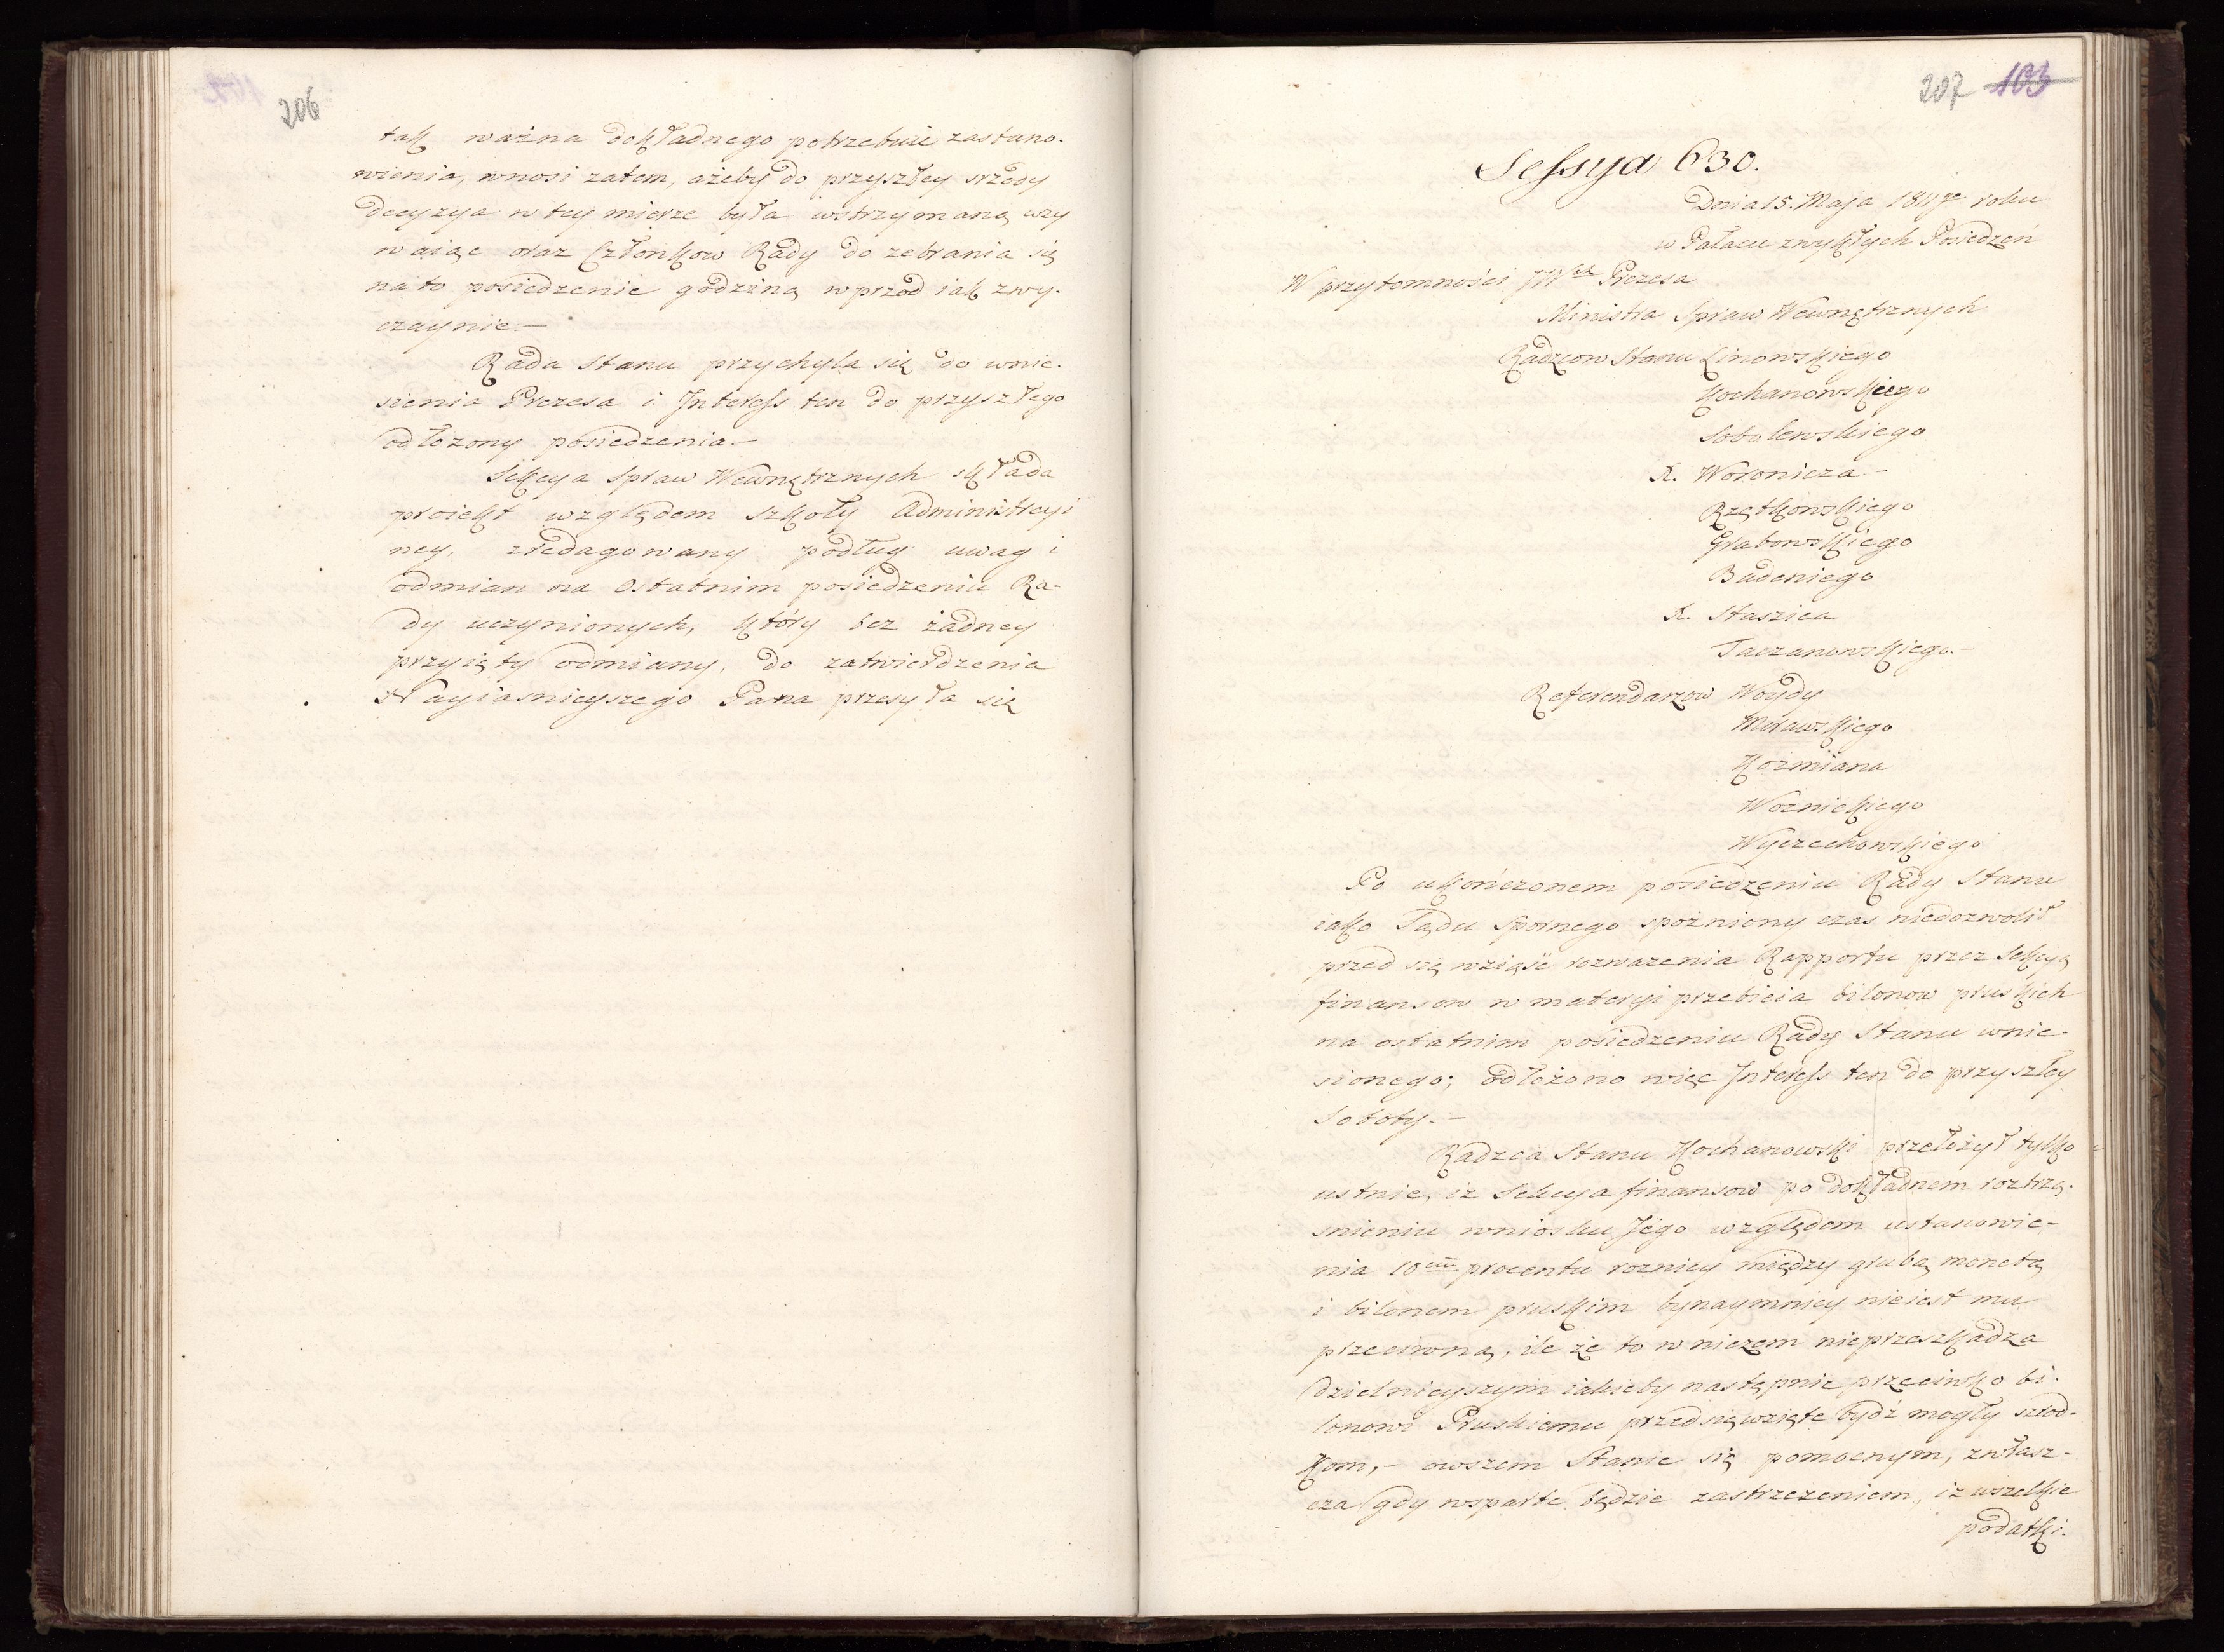 206
tak ważna dokładnego potrzebuie zastano-
wienia, wnosi zatem, ażeby do przyszłey srzody
decyzya w tey mierze była wstrzymaną wzy
waiąc oraz Członkow Rady do zebrania się
na to posiedzenie godziną wprzod iak zwy-
czaynie.—
Rada Stanu przychyla się do wnie-
sienia Prezesa i Interess ten do przyszłego
odłożony posiedzenia.—
Sekcya Spraw Wewnętrznych składa
proiekt względem szkoły Administracyi
ney, zredagowany podług uwag i
odmian na ostatnim posiedzeniu Ra-
dy uczynionych, który bez żadney
przyięty odmiany, do zatwierdzenia
Nayiasnieyszego Pana przesyła się
207 103
Sessya 630.
Dnia 15. Maja 1811go roku
w Pałacu zwykłych Posiedzeń
W przytomności JW Prezesa
Ministra Spraw Wewnętrznych
Radzcow Stanu Linowskiego
Kochanowskiego
Sobolewskiego
X. Woronicza.—
Rzętkowskiego
Grabowskiego
Badeniego
X. Staszica
Taczanowskiego.—
Referendarzow Woydy
Morawskiego
Kozmiana
Woznickiego
Wyczechowskiego
Po ukończonem posiedzeniu Rady Stanu
iako Sądu Spornego spoźniony czas niedozwolił
przed się wziąść rozwazenia Rapportu przez Sekcyą
finansow w materyi przebicia bilonow pruskich
na ostatnim posiedzeniu Rady Stanu wnie-
sionego; odłożono więc Interess ten do przyszłey
Soboty.—
Radzca Stanu Kochanowski przełożył tylko
ustnie, iz Sekcya finansow po dokładnem roztrzą-
snieniu wniosku Jego względem ustanowie-
nia 10 procentu roznicy między grubą monetą
i bilonem pruskim bynaymniey nieiest mu
przeciwną, ile że to w niczem nieprzeszkadza
dzielnieyszym iakieby następnie przeciwko bi-
lonowi Pruskiemu przedsięwzięte bydź mogły szrod-
kom,— owszem Stanie się pomocnym, zwłasz-
cza gdy wsparte będzie zastrzezeniem, iz wszelkie
podatki.